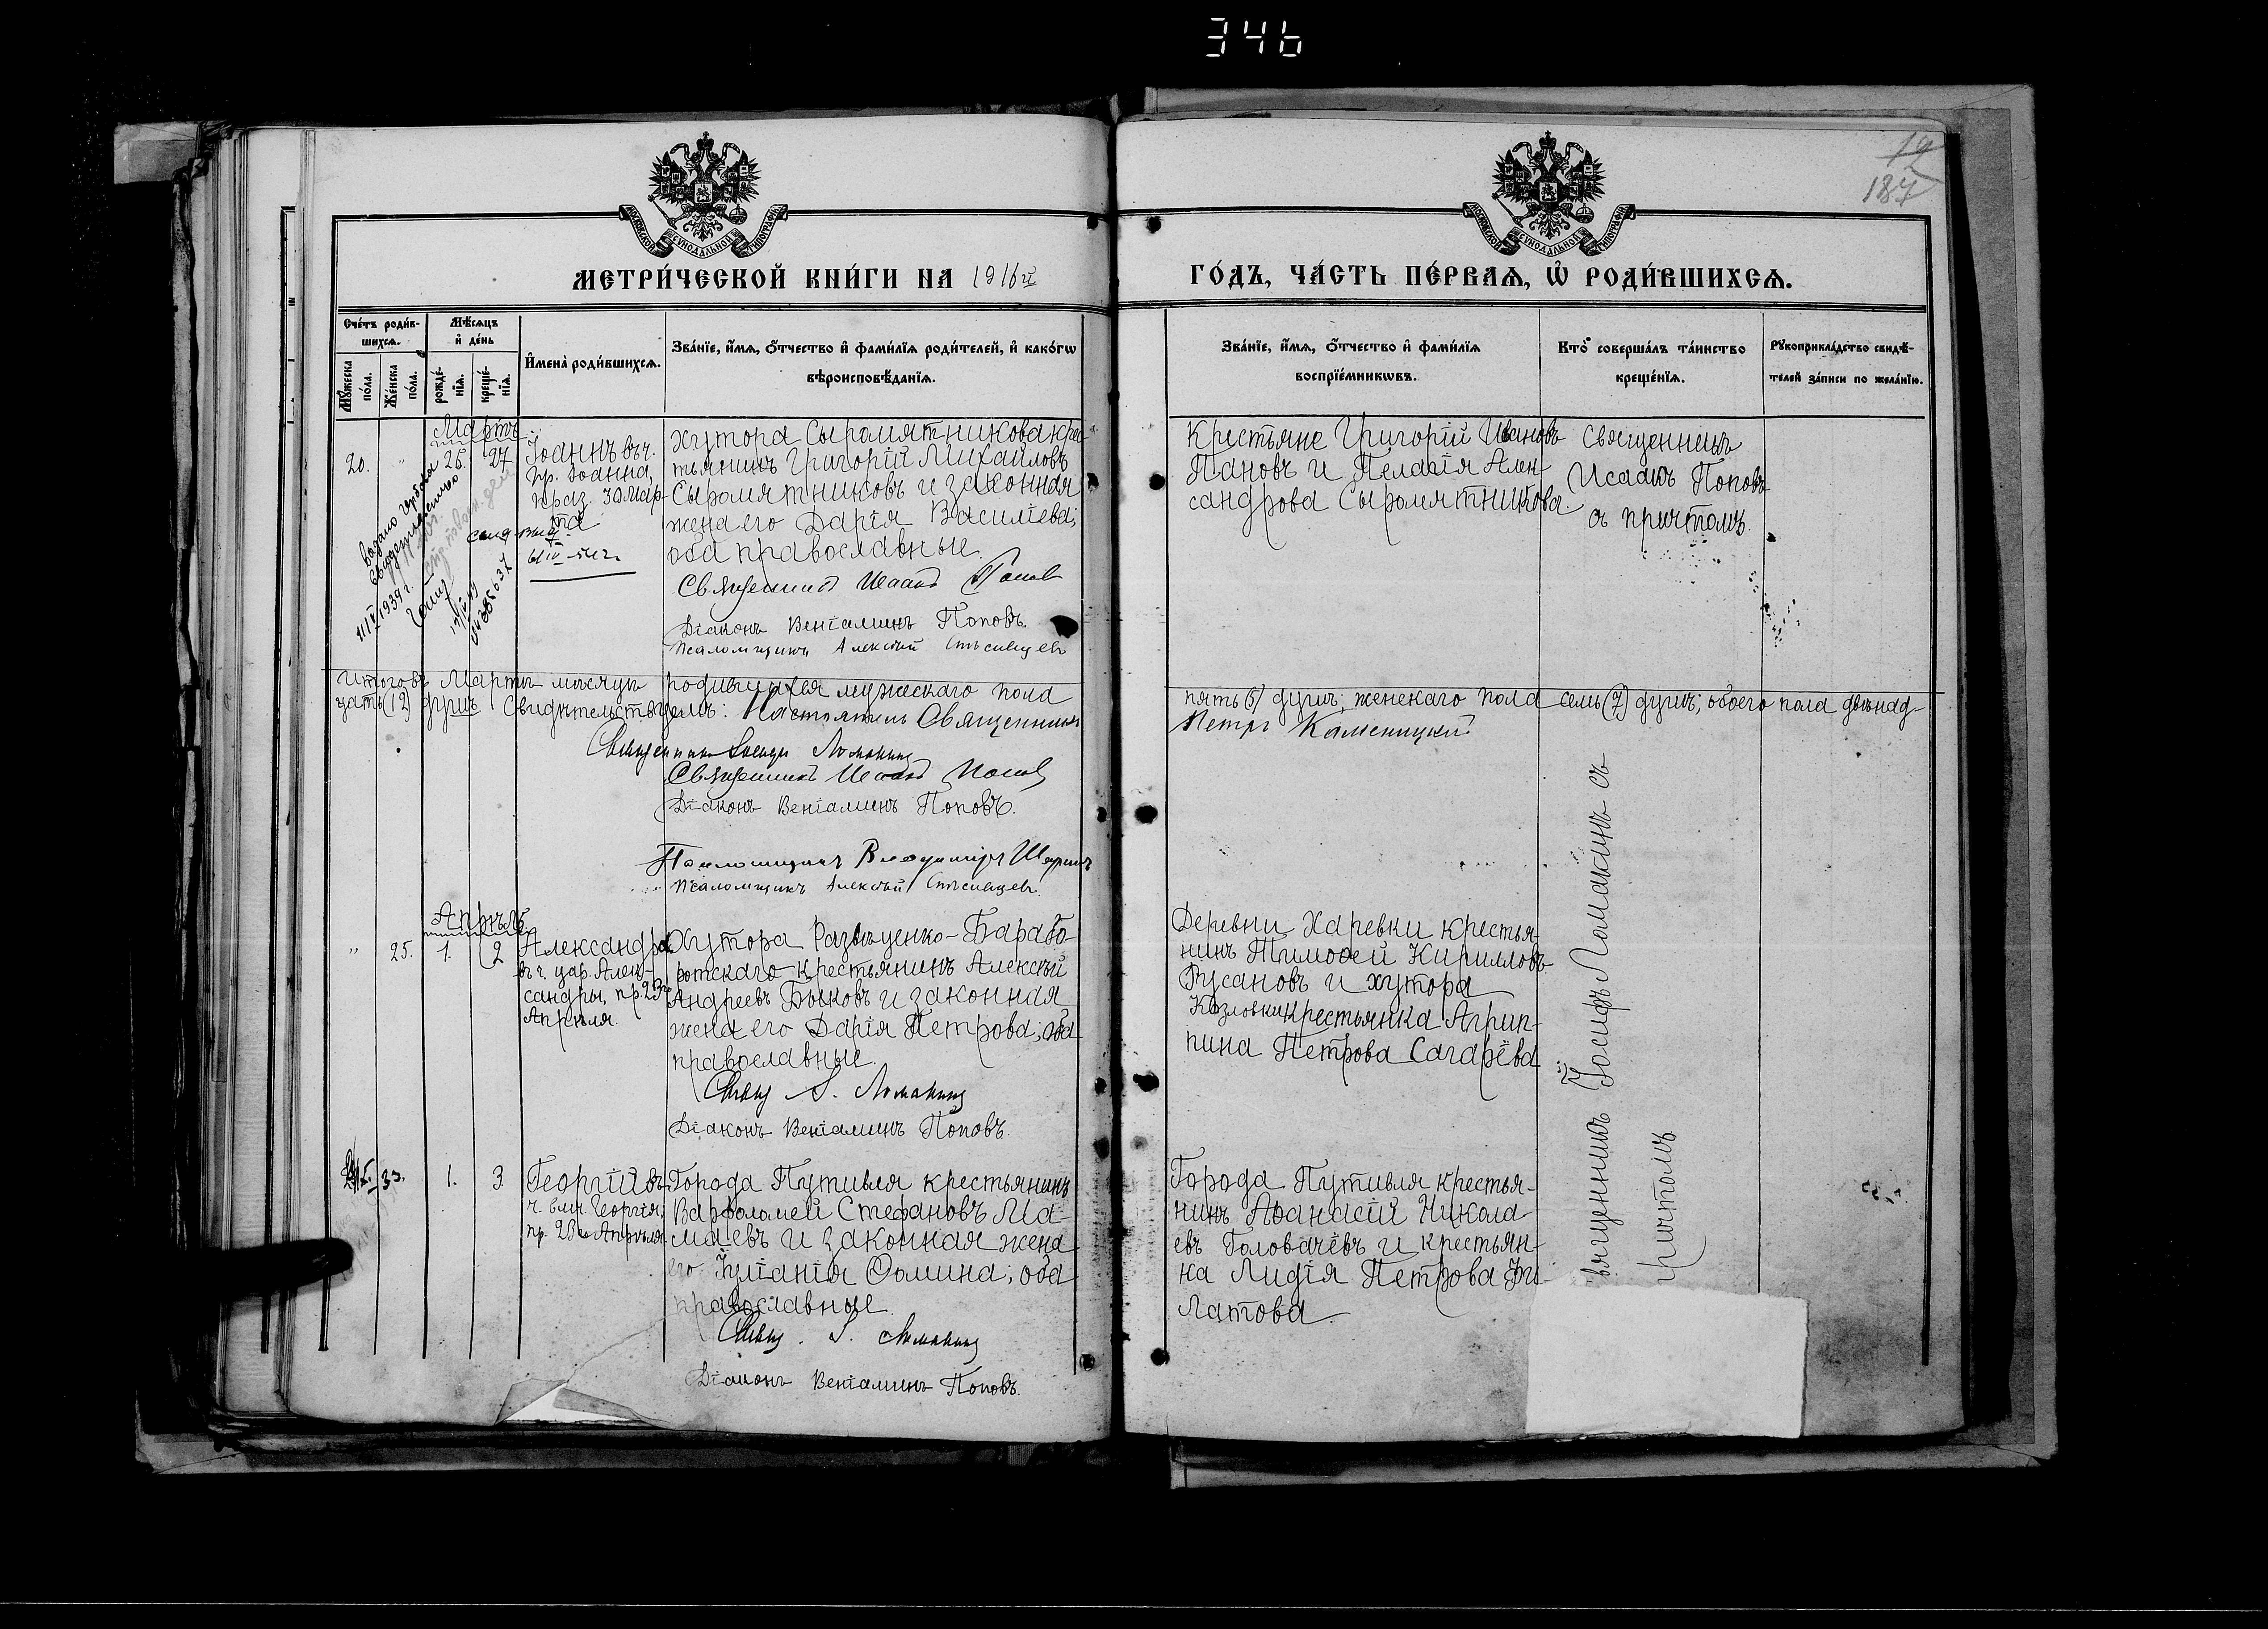 346
19
187
МОСКОВСКОЙ СѴНОДАЛЬНОЙ ТИПОГРАФІИ
МОСКОВСКОЙ СѴНОДАЛЬНОЙ ТИПОГРАФІИ
МЕТРИ́ЧЕСКОЙ КНИ́ГИ НА 1916й
ГО́ДЪ, ЧА́СТЬ ПЕ́РВАѦ, Ѡ҆ РОДИ́ВШИХСѦ.
Сче́тъ роди́в-
шихсѧ.
Мꙋ́жеска по́ла.
Же́нска по́ла.
Мѣ́сѧцъ
и҆ де́нь
рожде́-
нїѧ.
креще́-
нїѧ.
И҆мена̀ роди́вшихсѧ.
Зва́нїе, и҆́мѧ, ѻ҆́тчество и҆ фами́лїѧ роди́телей, и҆ како́гѡ
вѣроисповѣ́данїѧ.
Зва́нїе, и҆́мѧ, ѻ҆́тчество и҆ фами́лїѧ
воспрїе́мникѡвъ.
Кто̀ соверша́лъ та́инство
креще́нїѧ.
Рꙋкоприкла́дство свидѣ́-
телей за́писи по жела́нїю.
Мартъ
20.
"
25.
27
Іоаннъ въ ч.
пр. Іоанна,
праз. 30 Мар-
та
Хутора Сыромятникова кре-
тьянинъ Григорій Михаиловъ
Сыромятниковъ и законная
жена его Дарія Василіева;
оба православные.
Священникъ Исаакъ Поповъ
Діаконъ Веніаминъ Поповъ.
Псаломщикъ Алексѣй
Крестьяне Григорій Ивановъ
Пановъ и Пелагія Алек-
сандрова Сыромятникова.
Священникъ
Исаакъ Поповъ
съ причтомъ.
выдано
свидетельство
11/V 1939 г.
Итого въ Мартѣ мѣсяцѣ родившихся мужескаго пола
пять (5) душъ; женскаго пола семь (7) душъ; обоего пола двѣнад-
цать (12) душъ. Свидѣтельствуемъ: Настоятель Священникъ
Петръ Каменицкій
Священникъ Ломакинъ
Священникъ Исаакъ Поповъ
Діаконъ Веніаминъ Поповъ.
Псаломщикъ Владиміръ
Псаломщикъ Алексѣй
Апрѣль
"
25.
1.
2
Александра
въ ч. цар. Алек-
сандры, пр. 23го
Апрѣля.
Хутора Развѣценко-Барабо-
ротскаго крестьянинъ Алексѣй
Андреевъ Быковъ и законная
жена его Дарія Петрова; оба
православные.
Свящ. І. Ломакинъ
Діаконъ Веніаминъ Поповъ.
Деревни Харевки крестья-
нинъ Тимоѳей Кирилловъ
Русановъ и хутора
Козловки крестьянка Агрип-
пина Петрова Сагарёва
вященникъ Іосифъ Ломакинъ съ
причтомъ
33.
1.
3
Георгій въ
ч. влмч. Георгія,
пр. 23го Апрѣля
Города Путивля крестьянинъ
Варѳоломей Стефановъ Ма-
маевъ и законная жена
его Іуліанія Ѳомина; оба
православные.
Свящ. І. Ломакинъ
Діаконъ Веніаминъ Поповъ.
Города Путивля крестья-
нинъ Аѳанасій Никола-
евъ Головачёвъ и крестьян-
ка Лидія Петрова Фи-
латова.